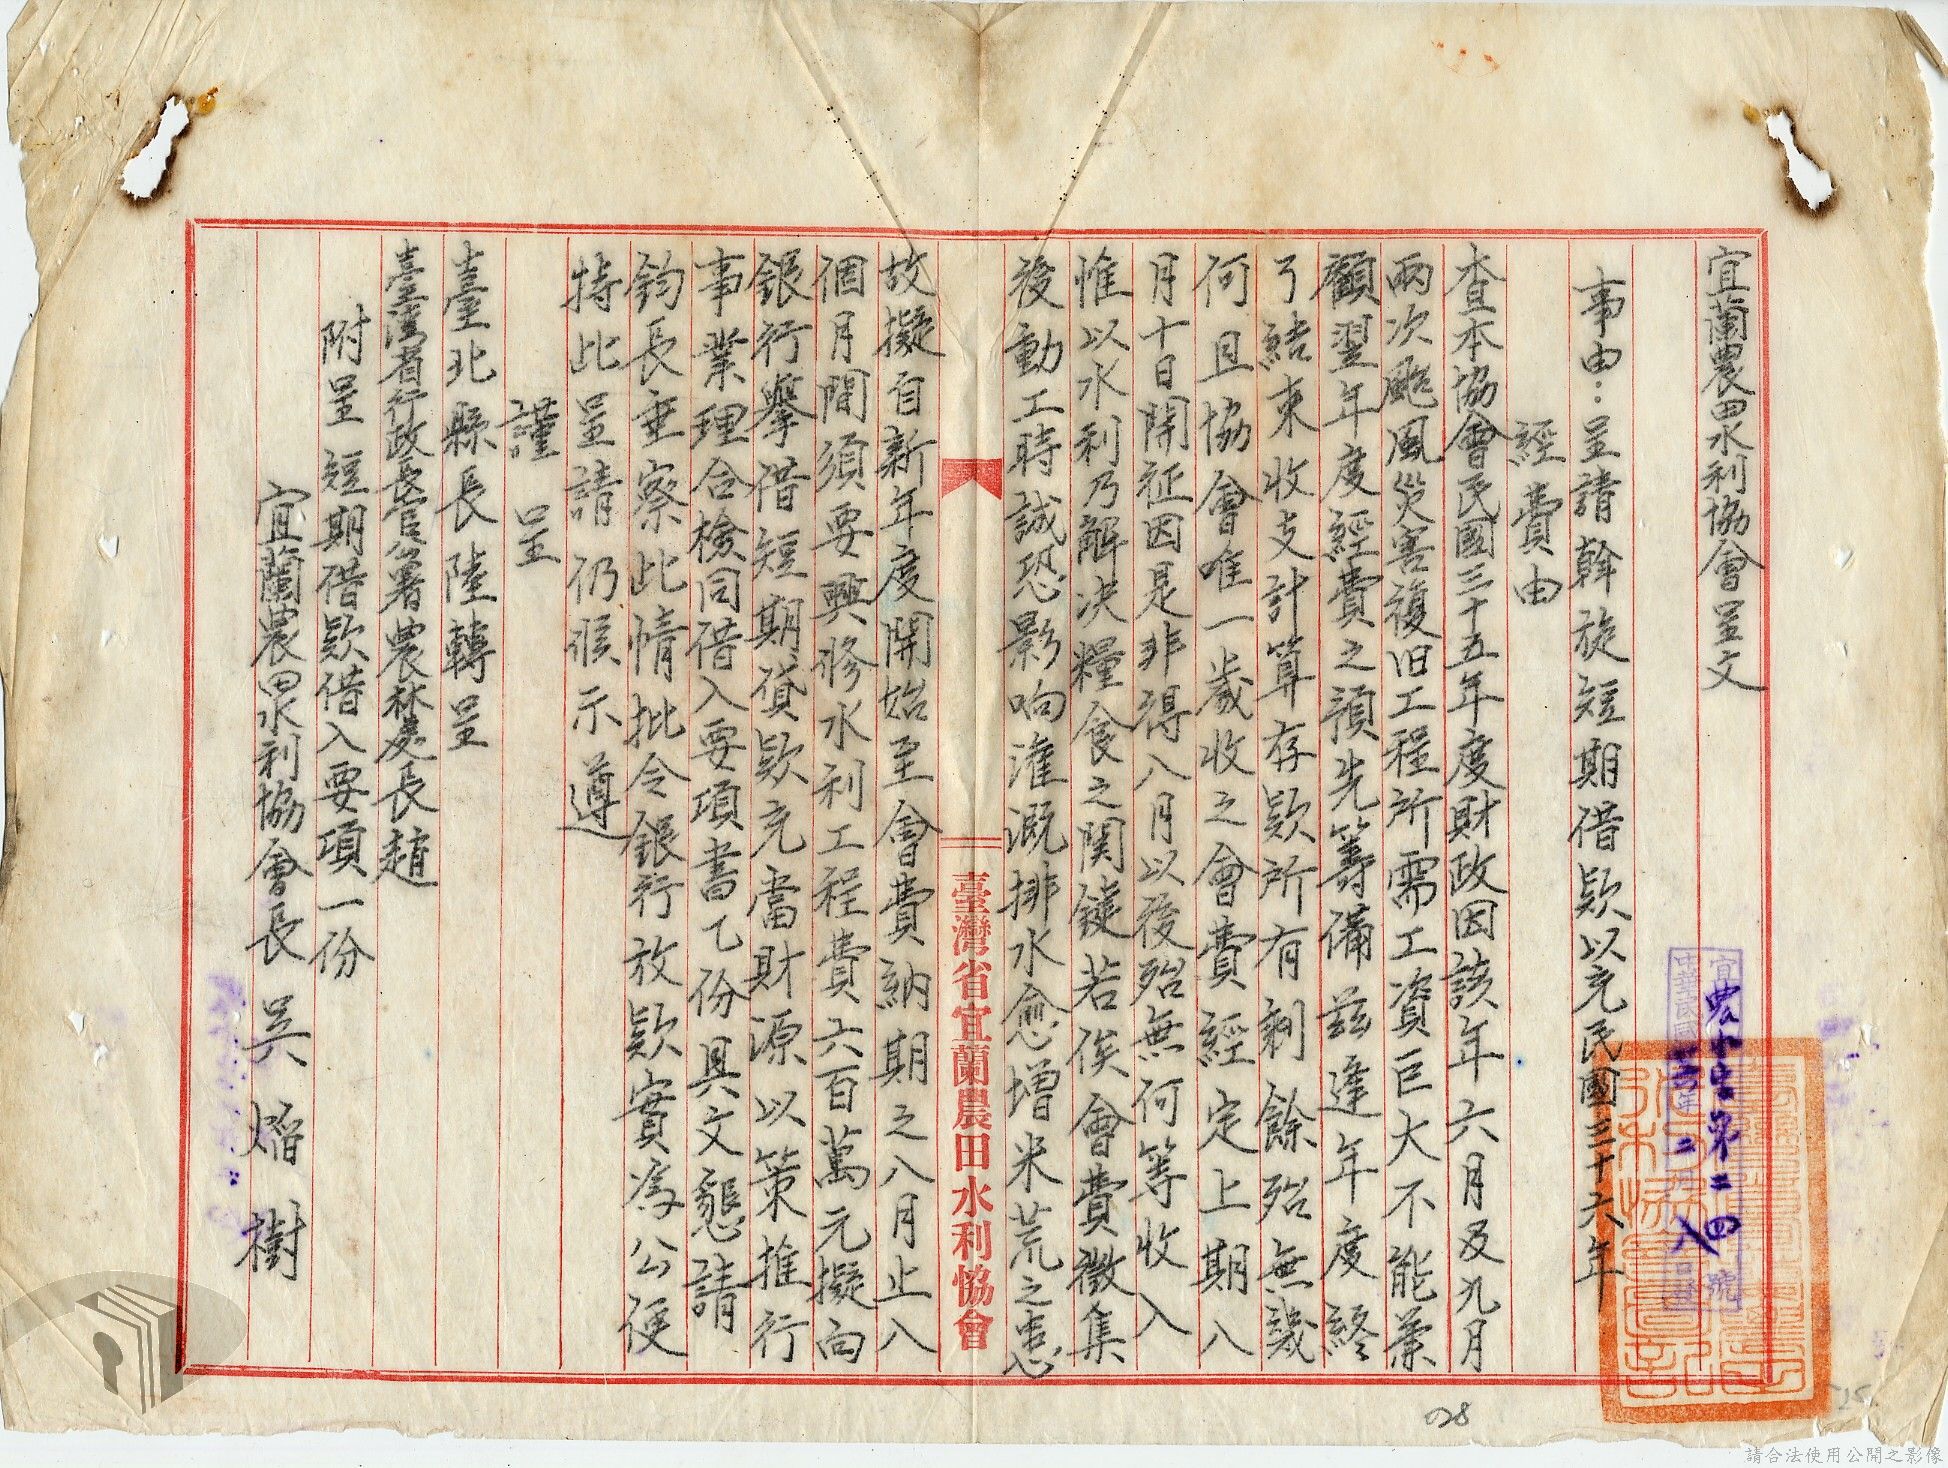 宜蘭農田水利協會呈文
宜
農水宜第二四號
中華民國卅六年二月八日發
事由：呈請斡旋短期借欵以充民國三十六年
經費由
查本協會民國三十五年度財政因該年六月及九月
兩次颱風災害復旧工程所需工資巨大不能兼
顧翌年度經費之預先籌備茲逢年度終
了結束收支計算存欵所有剩餘殆無幾
何且協會唯一歲收之會費經定上期八
月十日開征因是非得八月以後殆無何等收入
惟以水利乃解決糧食之関鍵若俟會費徵集
後動工時誠恐影响灌溉排水愈增米荒之患
臺灣省宜蘭農田水利協會
故擬自新年度開始至會費納期之八月止八
個月間須要興修水利工程費六百萬元擬向
銀行舉借短期貸欵充當財源以策推行
事業理合檢同借入要項書乙份具文懇請
鈞長垂察此情批令銀行放欵實為公便
持此呈請仍候示遵
謹呈
臺北縣長陸轉呈
臺灣省行政長官公署農林處長趙
附呈短期借欵借入要項一份
宜蘭農田水利協會長吳 樹
028
請合法使用公開之影像